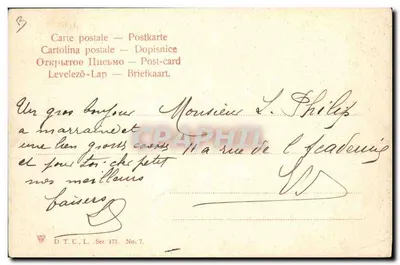 3)
Carte postale — Postkarte
Cartolina postale — Dopisnice
Открытое Письмо — Post-card
Levelező-Lap — Briefkaart.
Un gros bonjour
a marraine et
une bien grosse
et pour toi cher petit
nos meilleurs
baisers
Monsieur L. Philip
11 a rue de l'Academie
D. T. C., L. Ser. 171. No. 7.